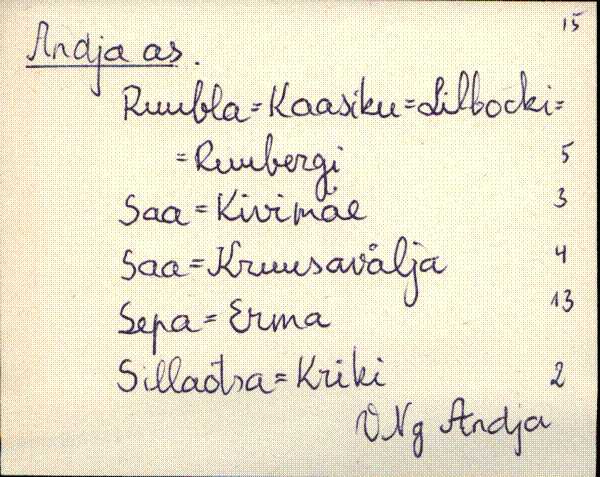 15
Andja as.
Ruubla = Kaasiku = Lilbocki =
= Ruubergi 5
Saa = Kivimäe 3
Saa = Kruusavälja 4
Sepa = Erma 13
Sillaotsa = Kriki 2
VNg Andja